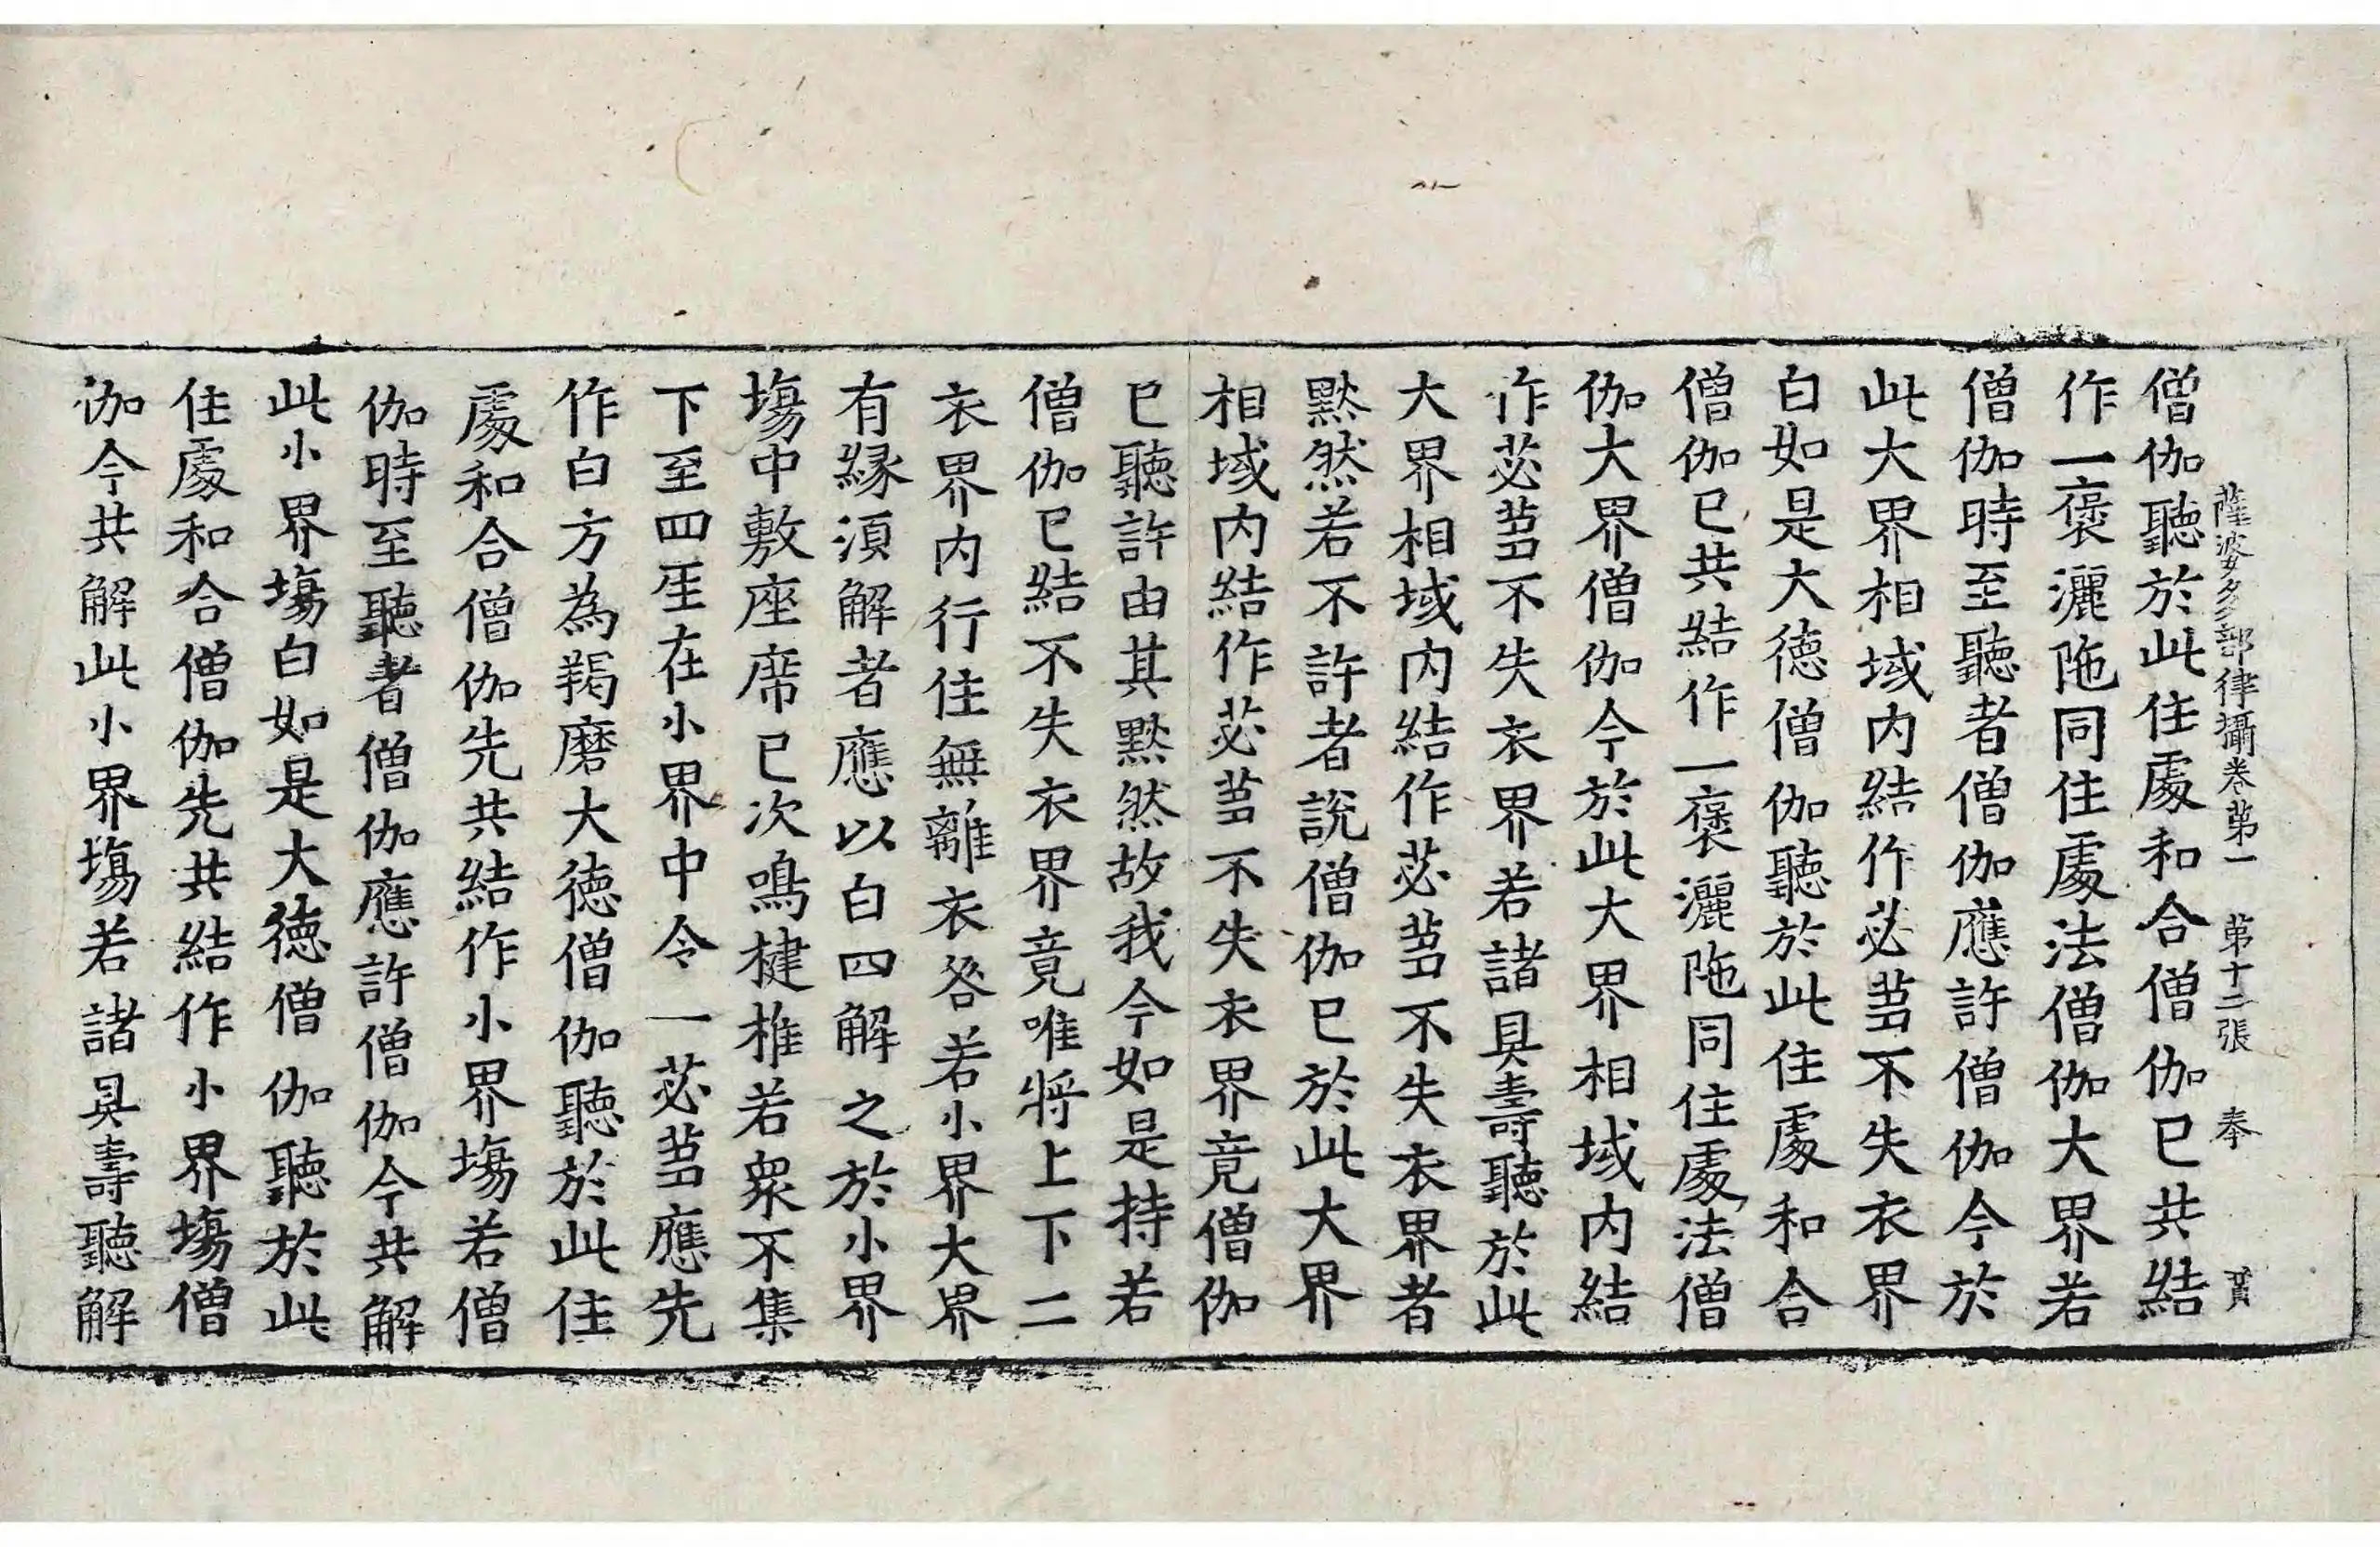 薩婆多部律攝卷第一 第十二張 奉 貫
僧伽聽於此住處和合僧伽已共結
作一褒灑陁同住處法僧伽大界若
僧伽時至聽者僧伽應許僧伽今於
此大界相域内結作苾蒭不失衣界
白如是大徳僧伽聽於此住處和合
僧伽已共結作一褒灑陁同住處法僧
伽大界僧伽今於此大界相域内結
作苾蒭不失衣界若諸具壽聽於此
大界相域内結作苾蒭不失衣界者
黙然若不許者說僧伽已於此大界
相域内結作苾蒭不失衣界竟僧伽
已聽許由其黙然故我今如是持若
僧伽已結不失衣界竟唯將上下二
衣界内行住無離衣咎若小界大界
有縁湏解者應以白四解之於小界
塲中敷座席已次鳴揵椎若衆不集
下至四𤯔在小界中令一苾蒭應先
作白方為羯磨大徳僧伽聽於此住
處和合僧伽先共結作小界塲若僧
伽時至聽者僧伽應許僧伽今共解
此小界塲白如是大徳僧伽聽於此
住處和合僧伽先共結作小界塲僧
伽今共解此小界塲若諸具壽聽解